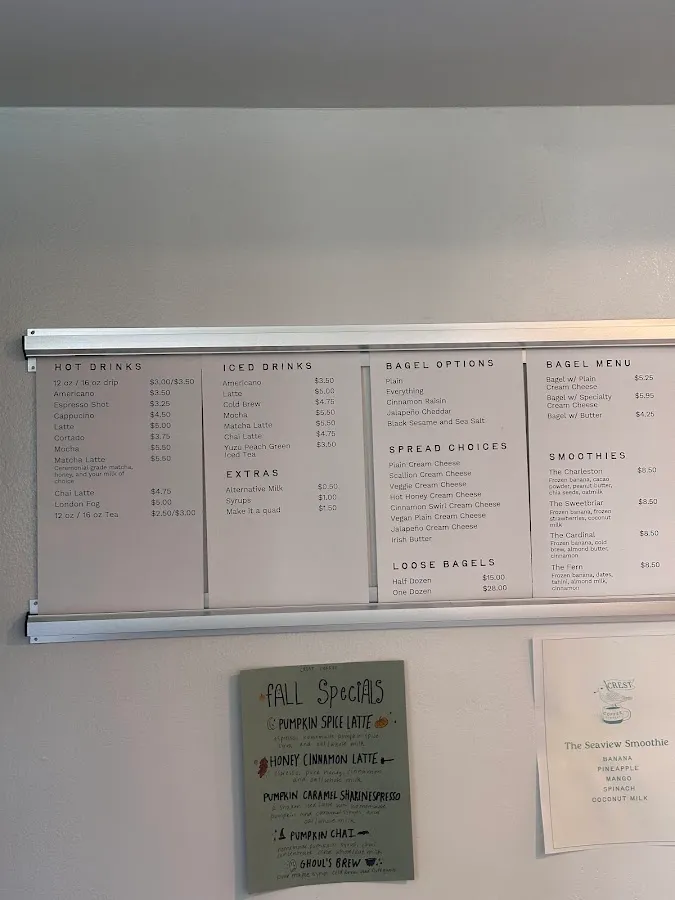 HOT DRINKS
12 oz / 16 oz drip $3.00/$3.50
Americano $3.50
Espresso Shot $3.25
Cappucino $4.50
Latte $5.00
Cortado $3.75
Mocha $5.50
Matcha Latte $5.50
Ceremonial grade matcha,
honey, and your milk of
choice
Chai Latte $4.75
London Fog $5.00
12 oz / 16 oz Tea $2.50/$3.00
ICED DRINKS
Americano $3.50
Latte $5.00
Cold Brew $4.75
Mocha $5.50
Matcha Latte $5.50
Chai Latte $4.75
Yuzu Peach Green $3.50
Iced Tea
EXTRAS
Alternative Milk $0.50
Syrups $1.00
Make it a quad $1.50
BAGEL OPTIONS
Plain
Everything
Cinnamon Raisin
Jalapeño Cheddar
Black Sesame and Sea Salt
SPREAD CHOICES
Plain Cream Cheese
Scallion Cream Cheese
Veggie Cream Cheese
Hot Honey Cream Cheese
Cinnamon Swirl Cream Cheese
Vegan Plain Cream Cheese
Jalapeño Cream Cheese
Irish Butter
LOOSE BAGELS
Half Dozen $15.00
One Dozen $28.00
BAGEL MENU
Bagel w/ Plain $5.25
Cream Cheese
Bagel w/ Specialty $5.95
Cream Cheese
Bagel w/ Butter $4.25
SMOOTHIES
The Charleston $8.50
Frozen banana, cacao
powder, peanut butter,
chia seeds, oatmilk
The Sweetbriar $8.50
Frozen banana, frozen
strawberries, coconut
milk
The Cardinal $8.50
Frozen banana, cold
brew, almond butter,
cinnamon
The Fern $8.50
Frozen banana, dates,
tahini, almond milk,
cinnamon
FALL SPECIALS
PUMPKIN SPICE LATTE
HONEY CINNAMON LATTE
and oatmilk
PUMPKIN CARAMEL SHAKINESPRESSO
PUMPKIN CHAI
GHOUL'S BREW
CREST
COFFEE
The Seaview Smoothie
BANANA
PINEAPPLE
MANGO
SPINACH
COCONUT MILK